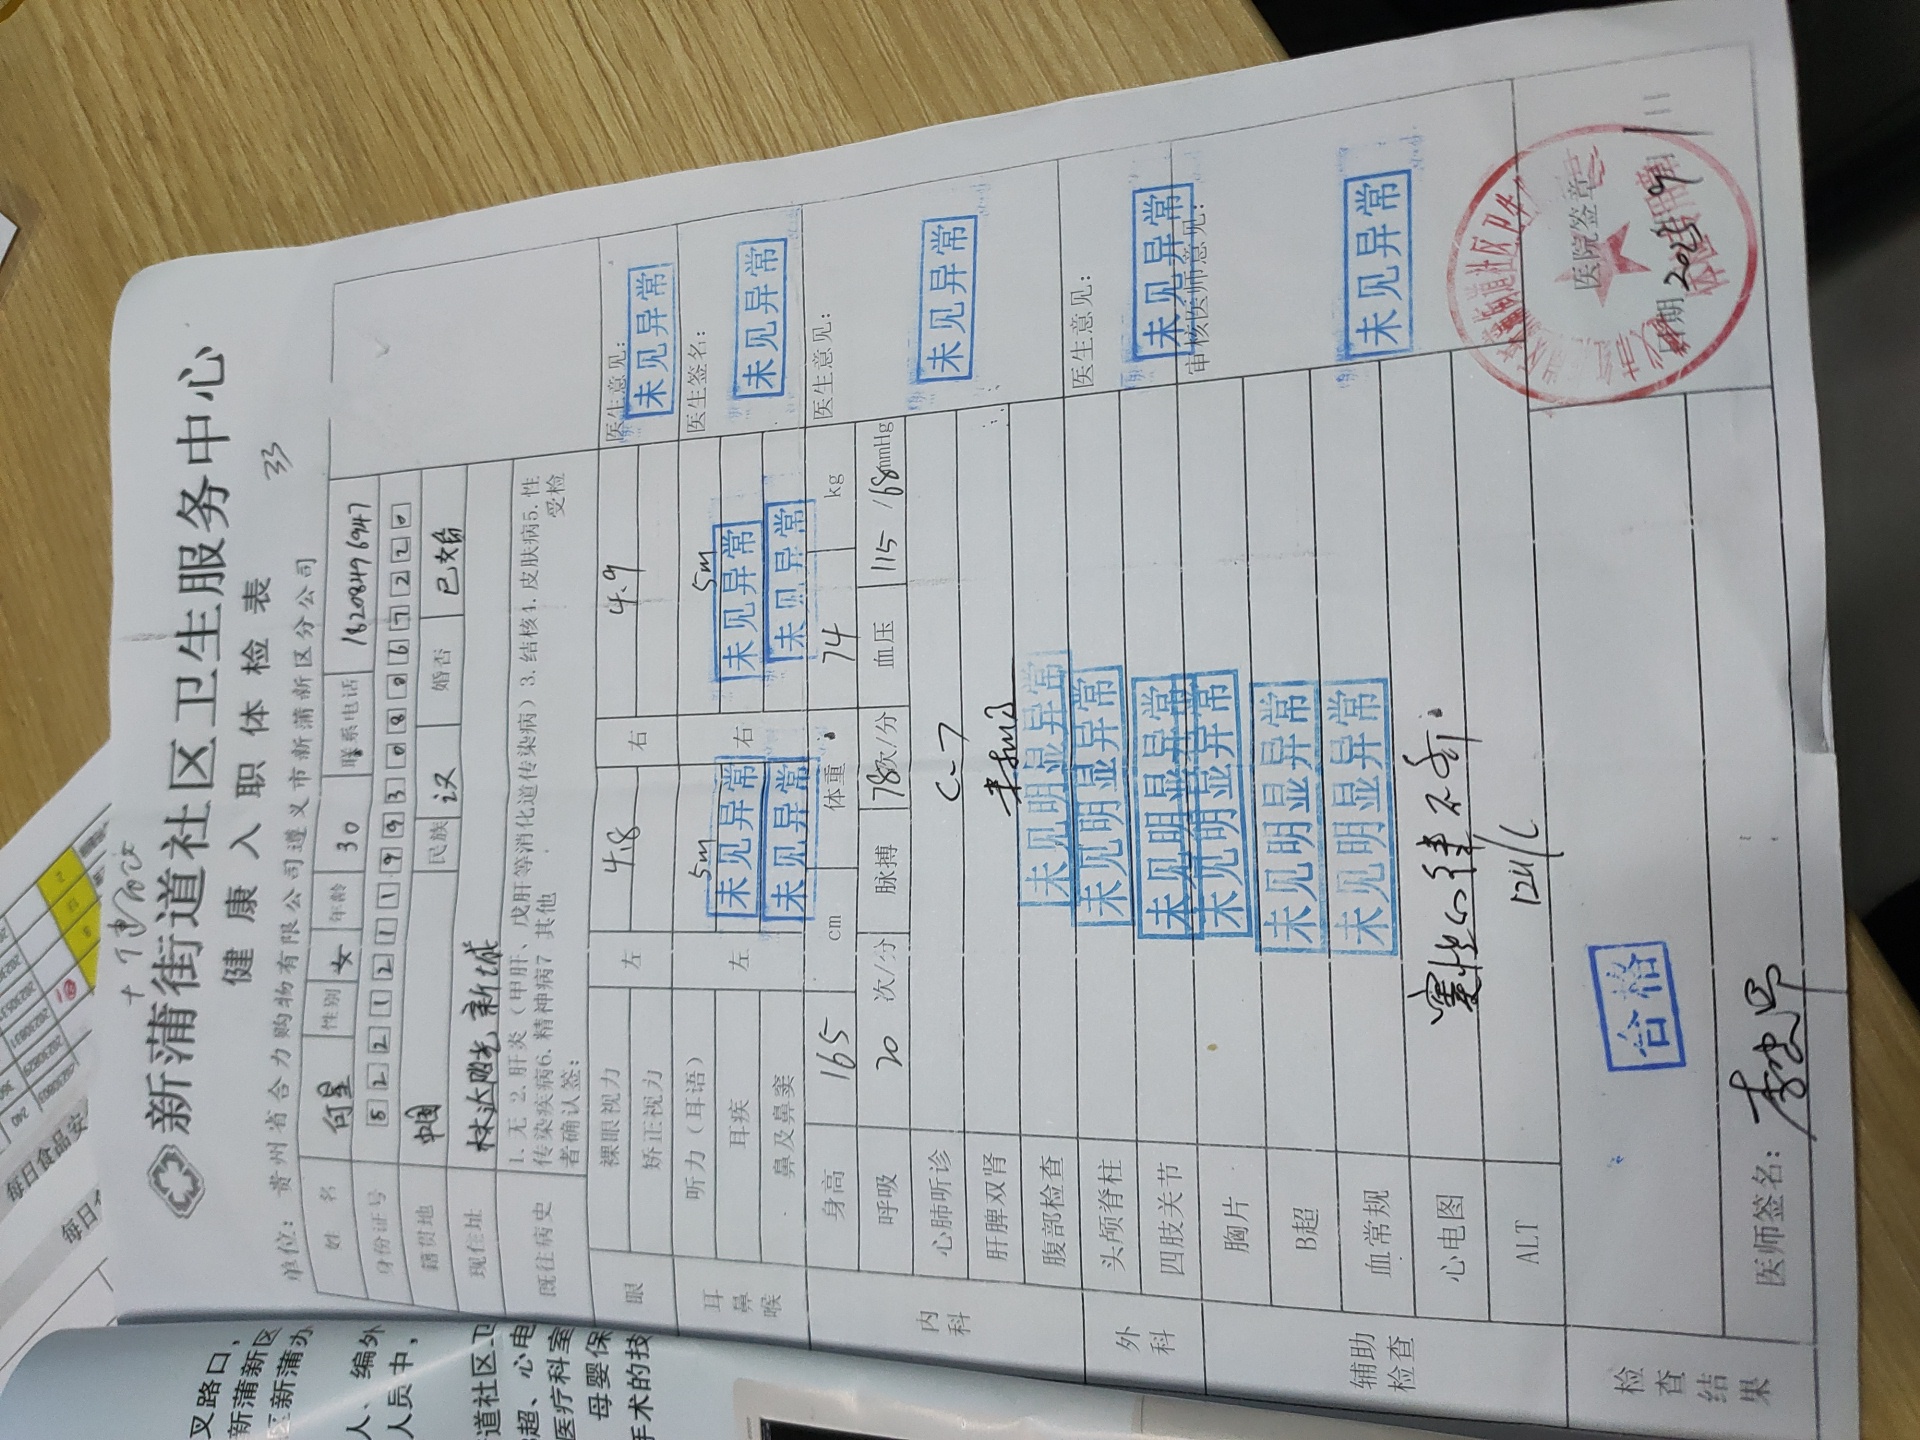 新蒲街道社区卫生服务中心
健康入职体检表
33
单位：贵州省合力购物有限公司遵义市新蒲新区分公司
姓名 何星 性别 女 年龄 30 联系电话 18208496947
身份证号 522121199308067220
籍贯地 中国 民族 汉 婚否 已婚
现住址 林达阳光新城
既往病史 1.无 2.肝炎（甲肝、戊肝等消化道传染病）3.结核4.皮肤病5.性
传染疾病6.精神病7 其他 受检
者确认签：
眼 裸眼视力 左 4.8 右 4.9 医生意见：
矫正视力 未见异常
耳鼻喉 听力（耳语） 左 5m 右 5m 医生签名：
耳疾 未见异常 未见异常 未见异常
鼻及鼻窦 未见异常 未见异常
内科 身高 165 cm 体重 74 kg 医生意见：
呼吸 20 次/分 脉搏 78次/分 血压 115/68mmHg
心肺听诊 未见异常
肝脾双肾
腹部检查 未见明显异常
外科 头颅脊柱 未见明显异常 医生意见：
四肢关节 未见明显异常 未见异常
辅助检查 胸片 未见明显异常 审核医师意见：
B超 未见明显异常
血常规 未见明显异常 未见异常
心电图 窦性心律不齐.
ALT 12U/L
检查结果 合格 医院签章
日期
医师签名：
每日食品安
叉路口，
新蒲新区
区新蒲办
人、编外
人员中，
道社区卫
超、心电
医疗科室
母婴保
手术的技